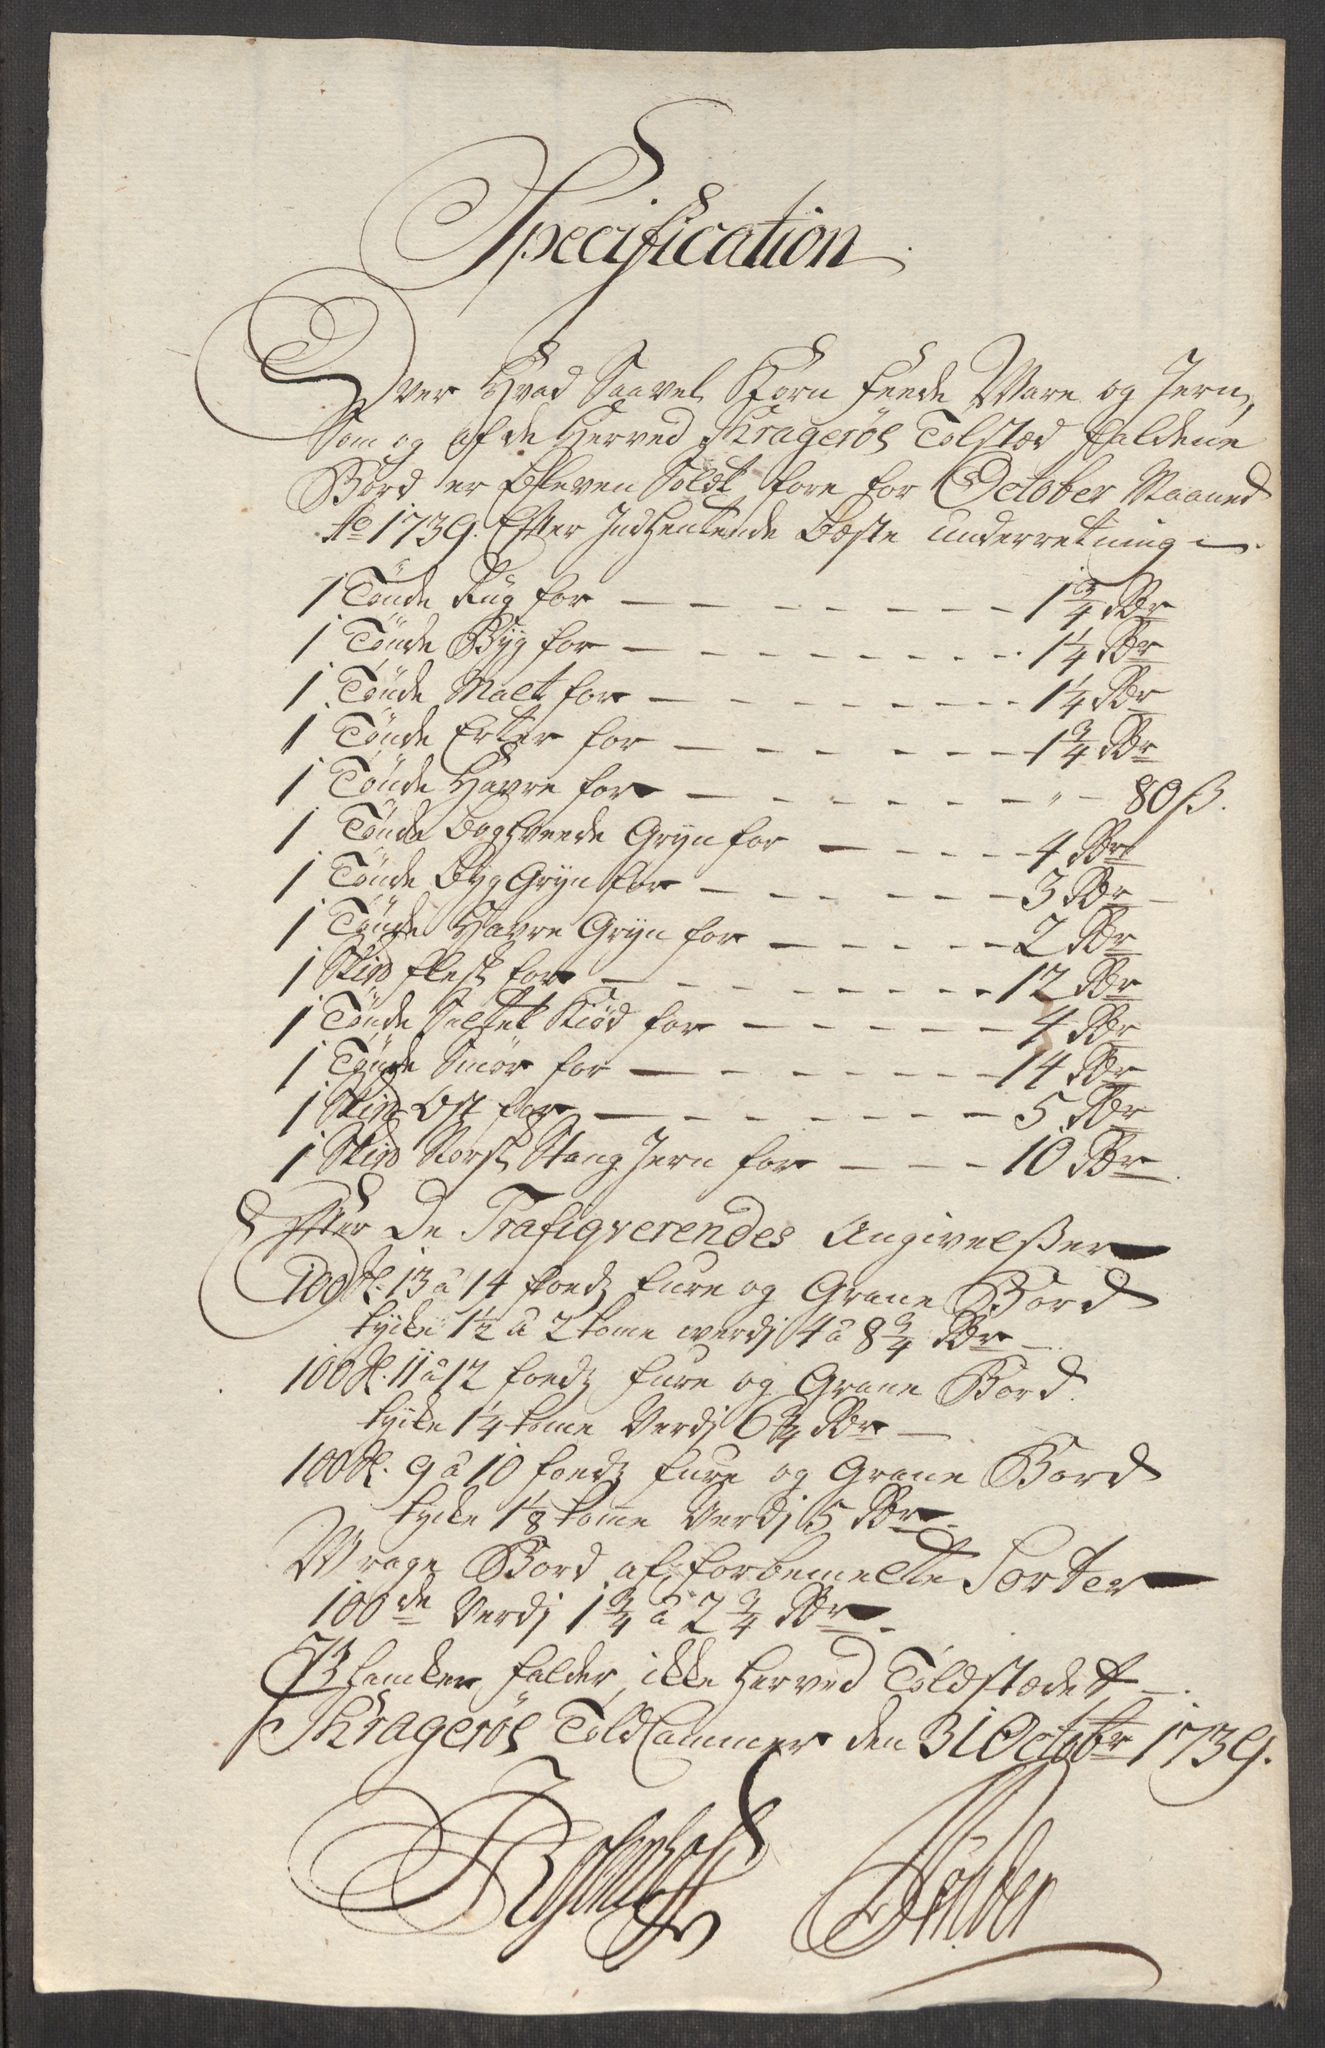 Specification
Over Hvad Saavel Korn feede Vare og Jern,
Som og af de Herved Kragerøes Tolsted faldene
Bord er bleven Soldt fore for October Maaned
Ao 1739. Efter Indhentende beste underretning
1 Tønde Rug for — 1 3/4 Rdr
1 Tønde Byg for — 1 1/4 Rdr
1 Tønde Malt for — 1 1/4 Rdr
1 Tønde Erter for — 1 3/4 Rdr
1 Tønde Havre for — " — 80 ß.
1 Tønde Boghveede Gryn for — 4 Rdr
1 Tønde Byg Gryn for — 3 Rdr
1 Tønde Havre Gryn for — 2 Rdr
1 Skpd flesk for — 12 Rdr
1 Tønde Saltet Kiød for — 4 Rdr
1 Tønde Smør for — 14 Rdr
1 Skpd Ost for — 5 Rdr
1 Skpd Norsk Stang Jern for — 10 Rdr
Efter De Trafiqverendes Angivelßer
100 st. 13 a 14 foeds fure og Grane Bord
tycke 1 1/2 a 2 tome werdj 4 a 8 3/4 Rdr
100 st. 11 a 12 foeds fure og Grane Bord
tycke 1 1/4 tome Verdj 6 3/4 Rdr
100 st. 9 a 10 foeds fure og Grane Bord
tycke 1 1/8 tome Verdj 5 Rdr
Wrage Bord af forbemelte Sorter
100de Verdj 1 3/4 a 2 3/4 Rdr
Planker falder ikke herved Toldstædet
Kragerøes Told Cammer den 31 Octobr 1739.